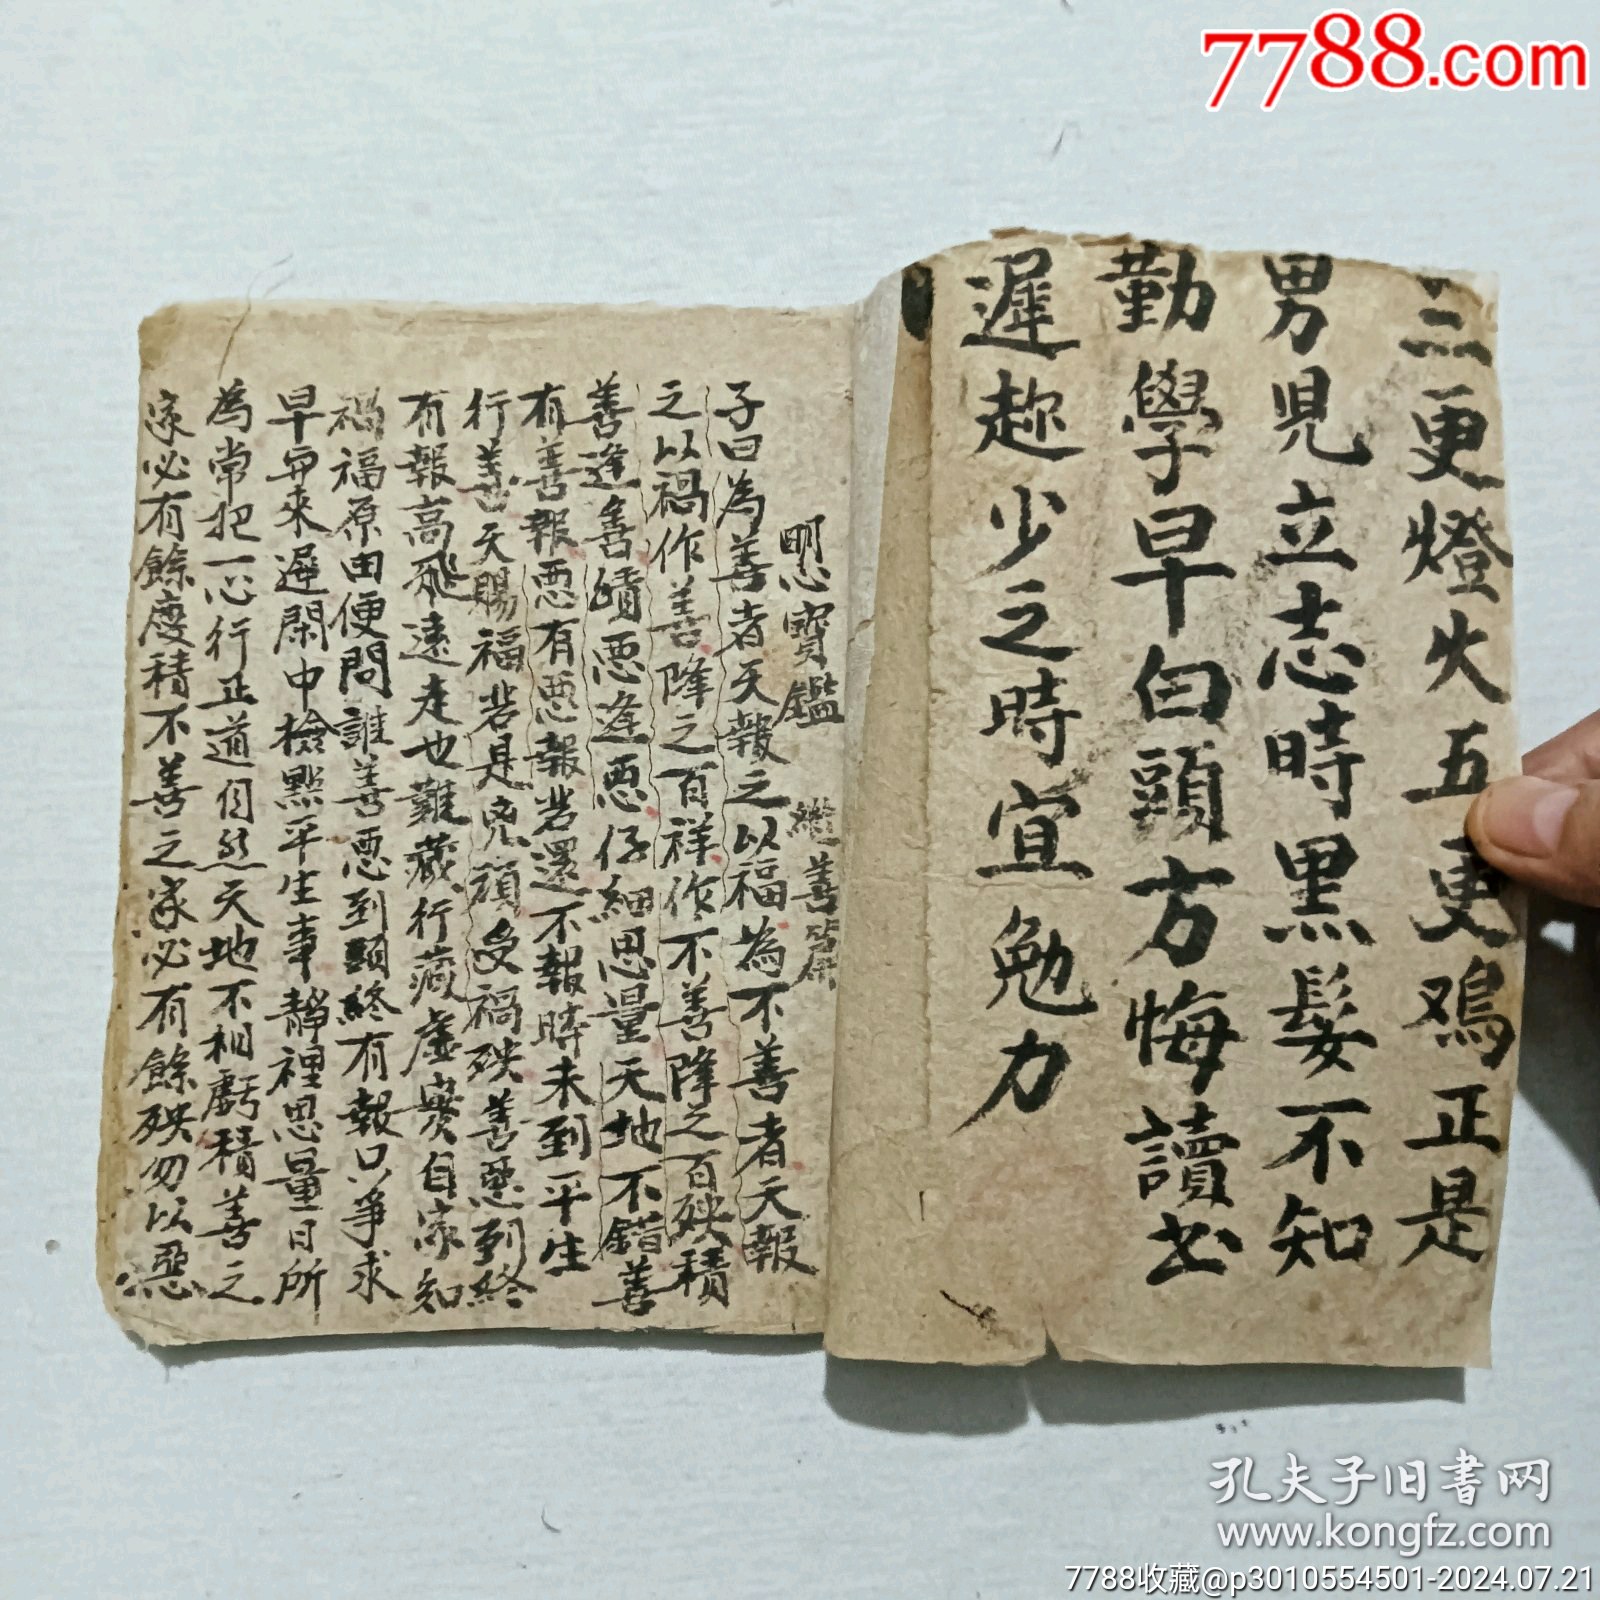 7788.com
三更燈火五更鳮正是
男児立志時黒髮不知
勤學早白頭方悔讀书
遲趂少之時宜勉力
明心寶鑑 继善篇
子曰為善者天報之以福為不善者天報
之以禍作善降之百祥作不善降之百殃積
善逢善績悪逢悪仔細思量天地不錯善
有善報悪有悪報若還不報時未到平生
行善天賜福若是兇頑受禍殃善悪到終
有報高飛遠走也難藏行藏虛實自家知
禍福原由便問誰善悪到頭終有報只爭求
早與來遲閑中檢點平生事靜裡思量日所
為常把一心行正道自然天地不相虧積善之
家必有餘慶積不善之家必有餘殃勿以惡
孔夫子旧書网
www.kongfz.com
7788收藏@p3010554501-2024.07.21